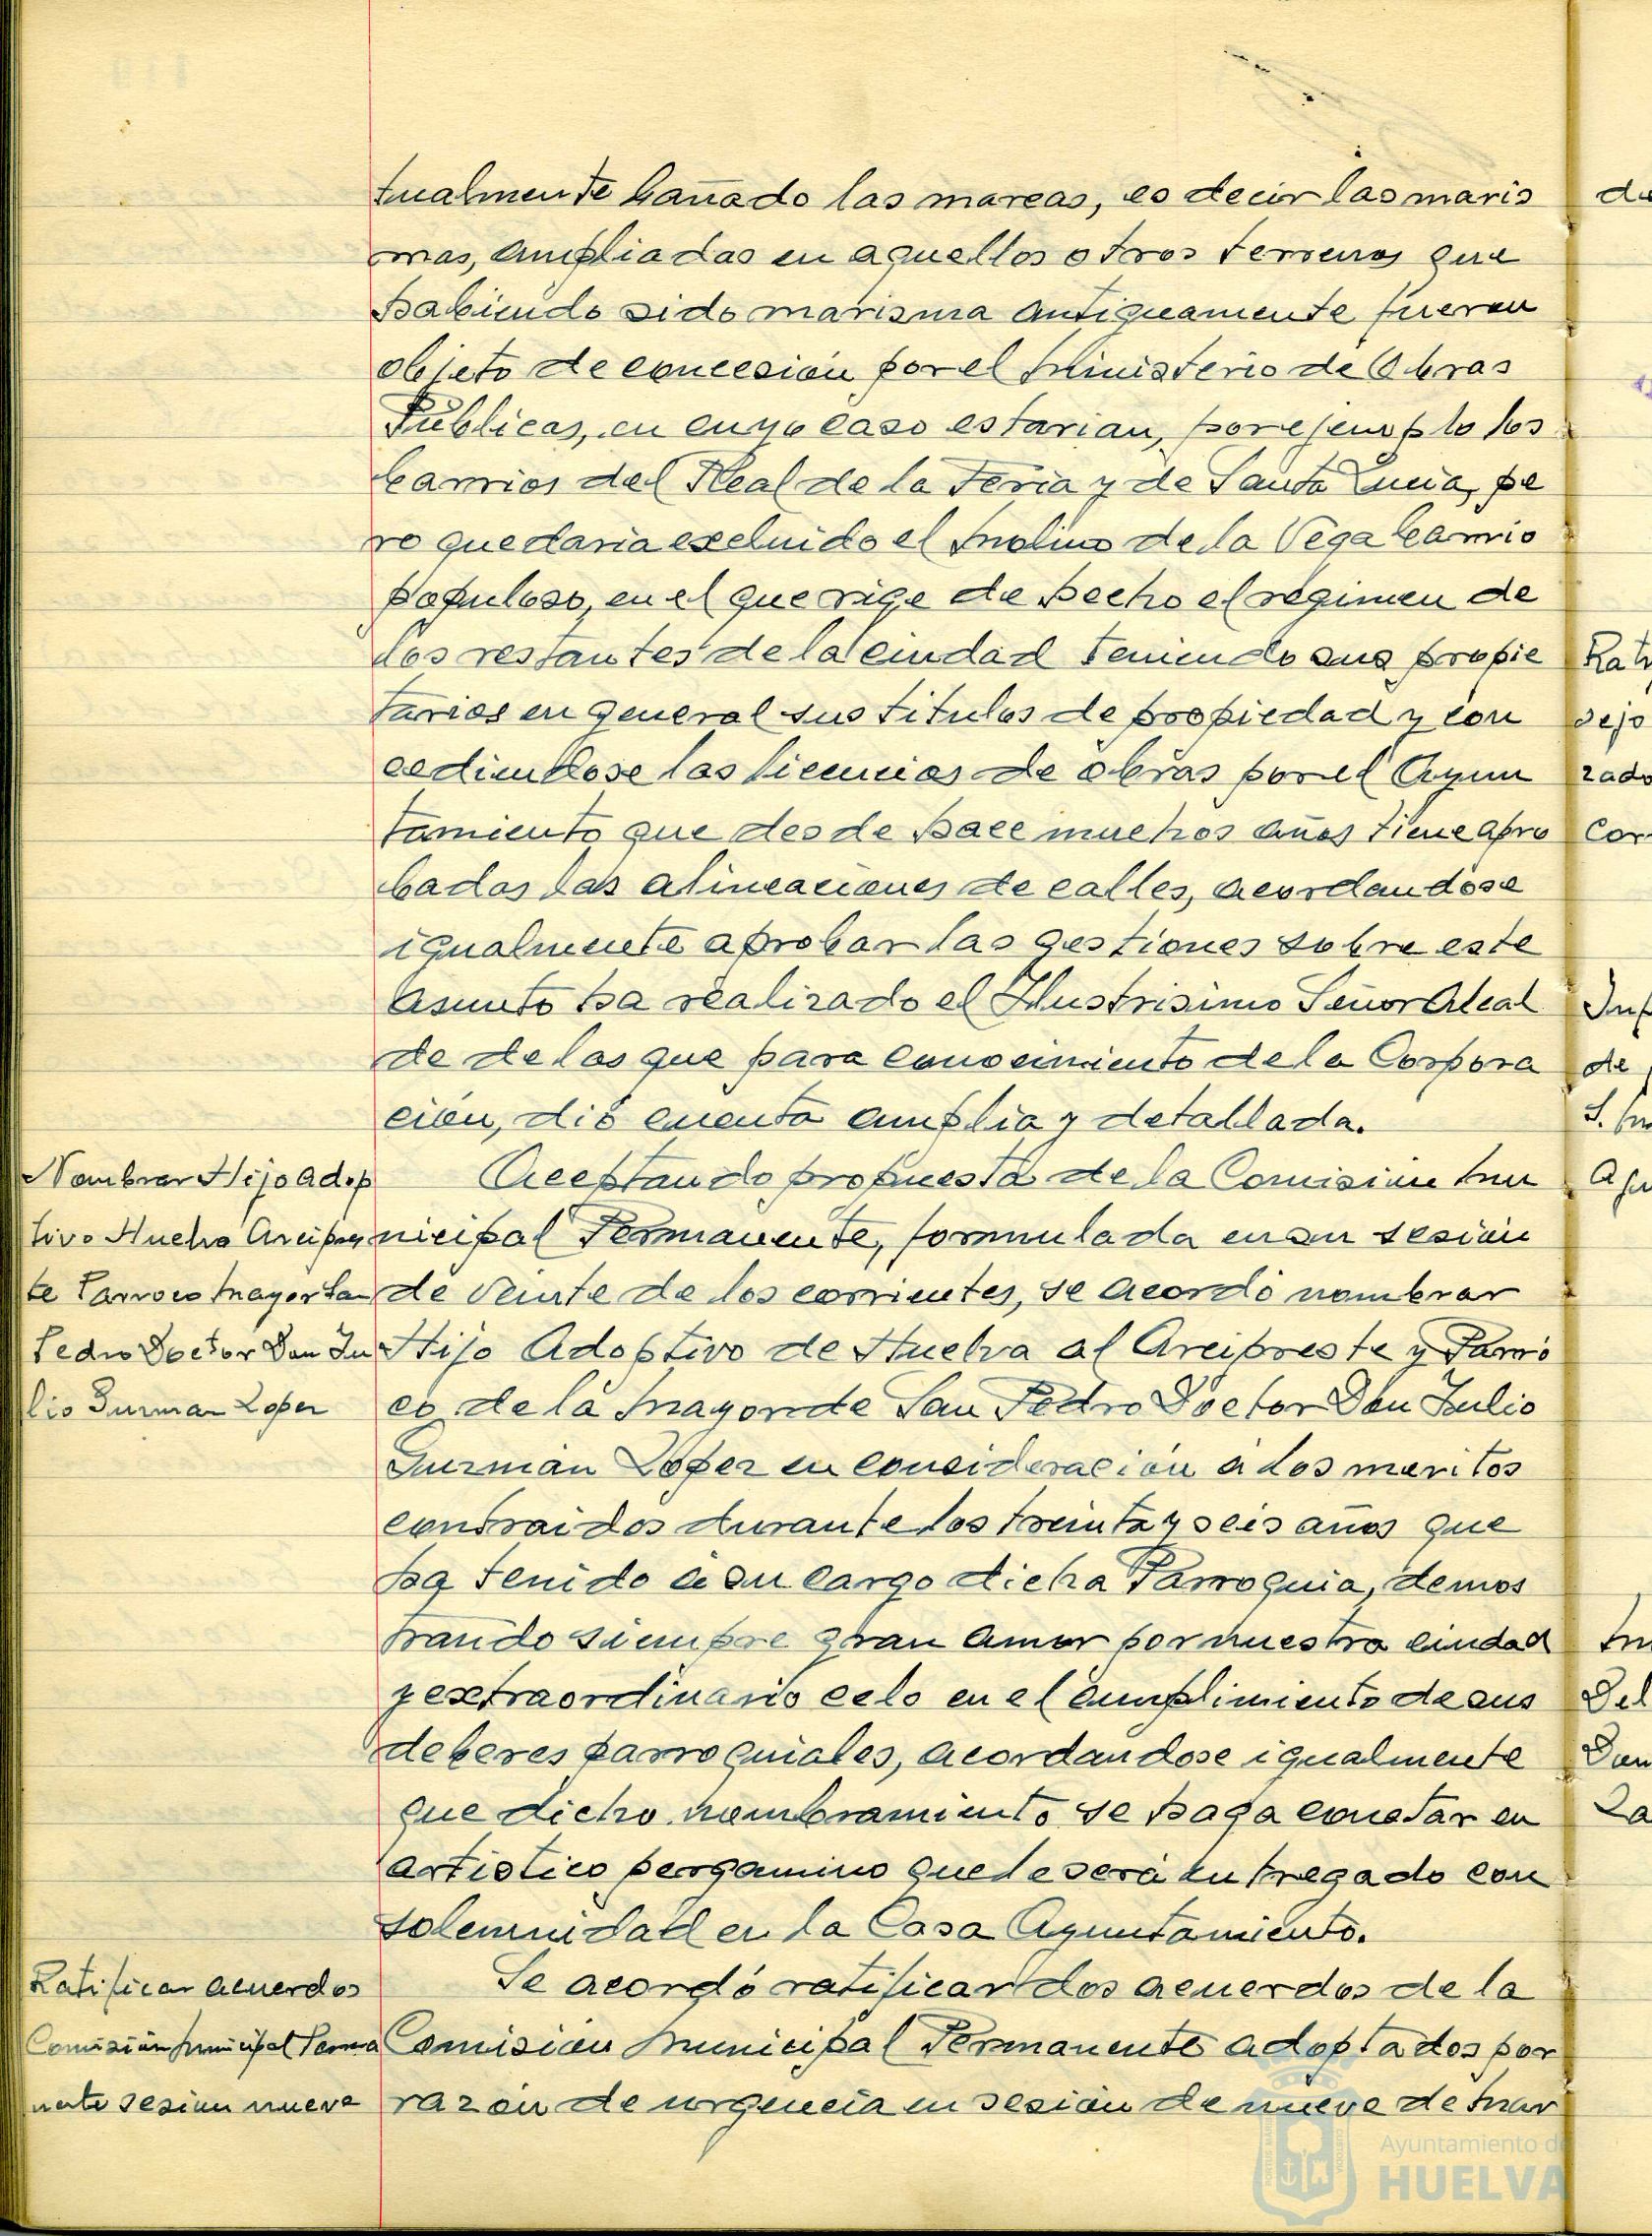 tualmente bañado las mareas, es decir las maris
mas, ampliadas en aquellos otros terrenos que
habiendo sido marisma antiguamente fueron
objeto de concesión por el Ministerio de Obras
Públicas, en cuyo caso estarian, por ejemplo los
barrios del Real de la Feria y de Santa Lucia, pe
ro quedaria excluido el Molino de la Vega barrio
populoso, en el que rige de hecho el regimen de
los restantes de la ciudad teniendo sus propie
tarios en general sus titulos de propiedad y con
cediendose las licencias de obras por el Ayun
tamiento que desde hace muchos años tiene apro
badas las alineaciones de calles, acordandose
igualmente aprobar las gestiones sobre este
asunto ha realizado el Ilustrisimo Señor Alcal
de de las que para conocimiento de la Corpora
ción, dió cuenta amplia y detallada.
Nombrar Hijo Adop
tivo Huelva Arcipres
te Parroco Mayor San
Pedro Doctor Don Ju
lio Guzman Lopez
Aceptando propuesta de la Comision Mu
nicipal Permanente, formulada en su sesión
de veinte de los corrientes, se acordó nombrar
Hijo Adoptivo de Huelva al Arcipreste y Parró
co de la Mayor de San Pedro Doctor Don Julio
Guzmán López en consideración a los meritos
contraidos durante los treinta y seis años que
ha tenido a su cargo dicha Parroquia, demos
trando siempre gran amor por nuestra ciudad
y extraordinario celo en el cumplimiento de sus
deberes parroquiales, acordandose igualmente
que dicho nombramiento se haga constar en
artistico pergamino que le será entregado con
solemnidad en la Casa Ayuntamiento.
Ratificar acuerdos
Comisión Municipal Perma
nente sesion nueve
Se acordó ratificar los acuerdos de la
Comisión Municipal Permanente adoptados por
razón de urgencia en sesión de nueve de Mar
de
Rat
sejo
zado
Cor
de
Del
Don
Ayuntamiento de
HUELVA